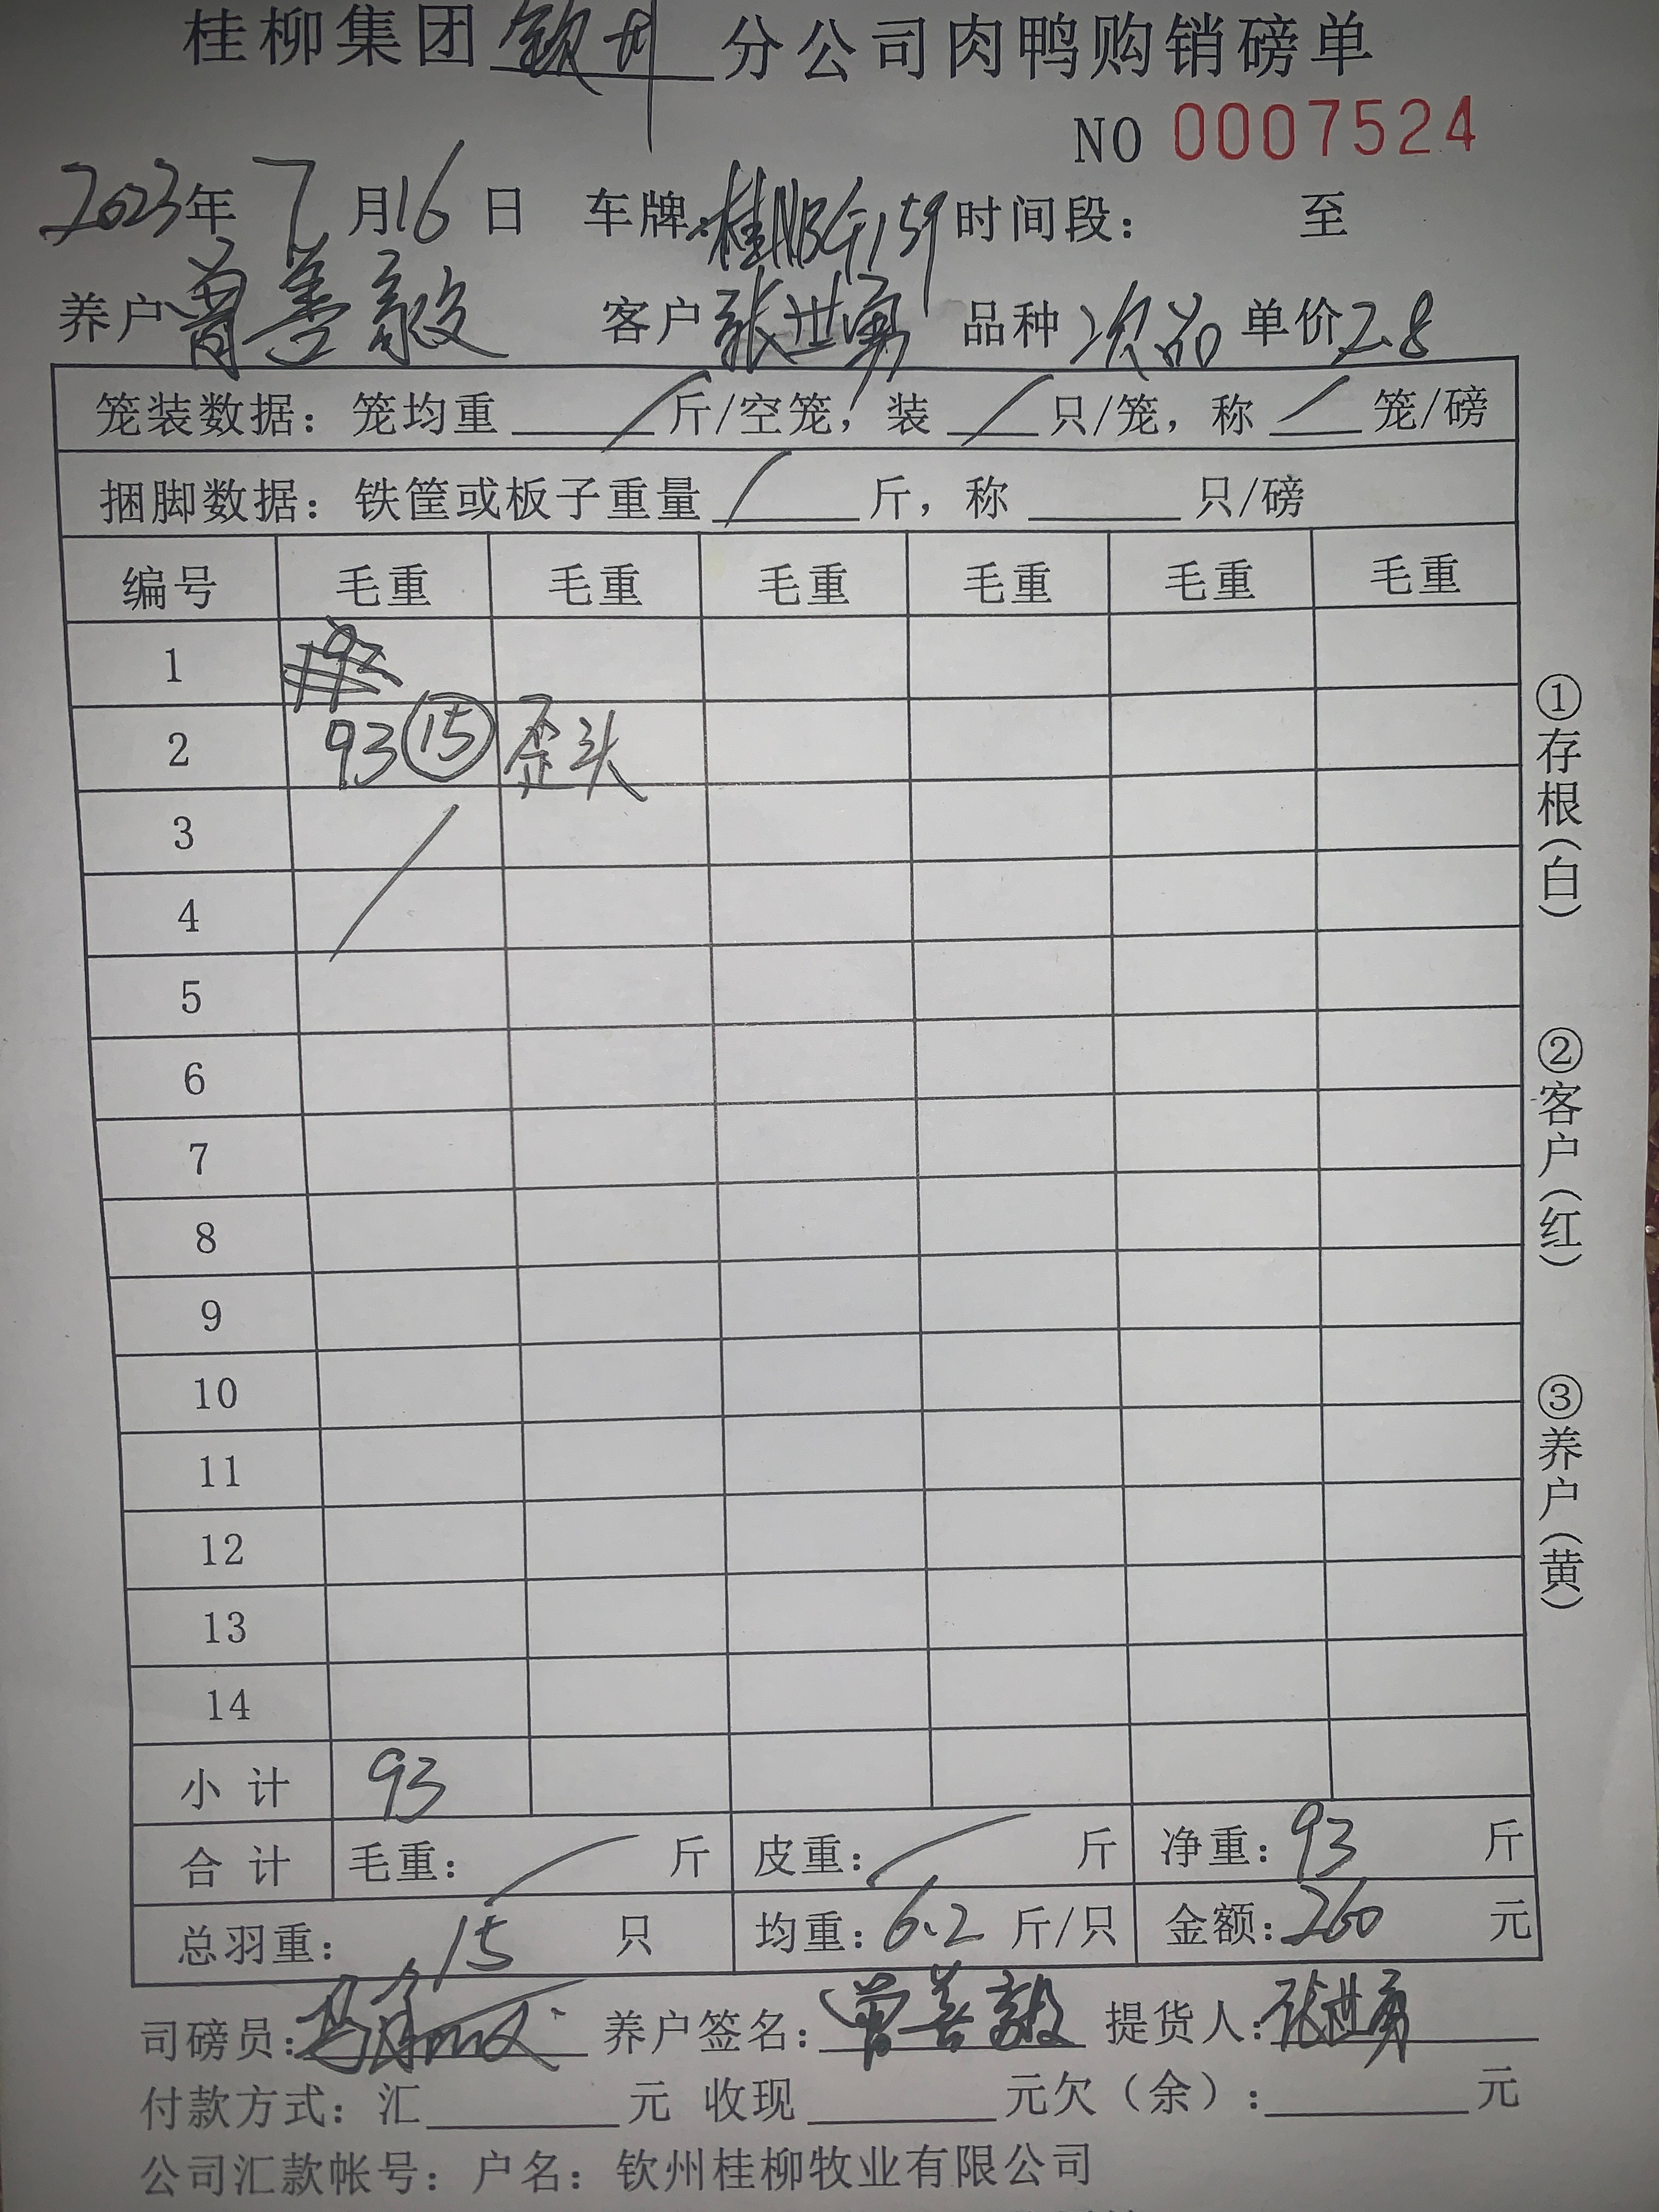 桂柳集团钦州分公司肉鸭购销磅单
NO 0007524
2023年7月16日 车牌:桂NBG159时间段: 至
养户曾善毅 客户张世勇 品种次品单价2.8
笼装数据:笼均重/斤/空笼,装/只/笼,称/笼/磅
捆脚数据:铁筐或板子重量/斤,称____只/磅
编号 毛重 毛重 毛重 毛重 毛重 毛重
1
2 93 ⑮ 歪头
3
4
5
6
7
8
9
10
11
12
13
14
小计 93
合计 毛重:/斤 皮重:/斤 净重:93斤
总羽重:15只 均重:6.2斤/只 金额:260元
司磅员: 养户签名:曾善毅 提货人:张世勇
付款方式:汇____元 收现____元欠(余):____元
公司汇款帐号:户名:钦州桂柳牧业有限公司
①存根(白)
②客户(红)
③养户(黄)